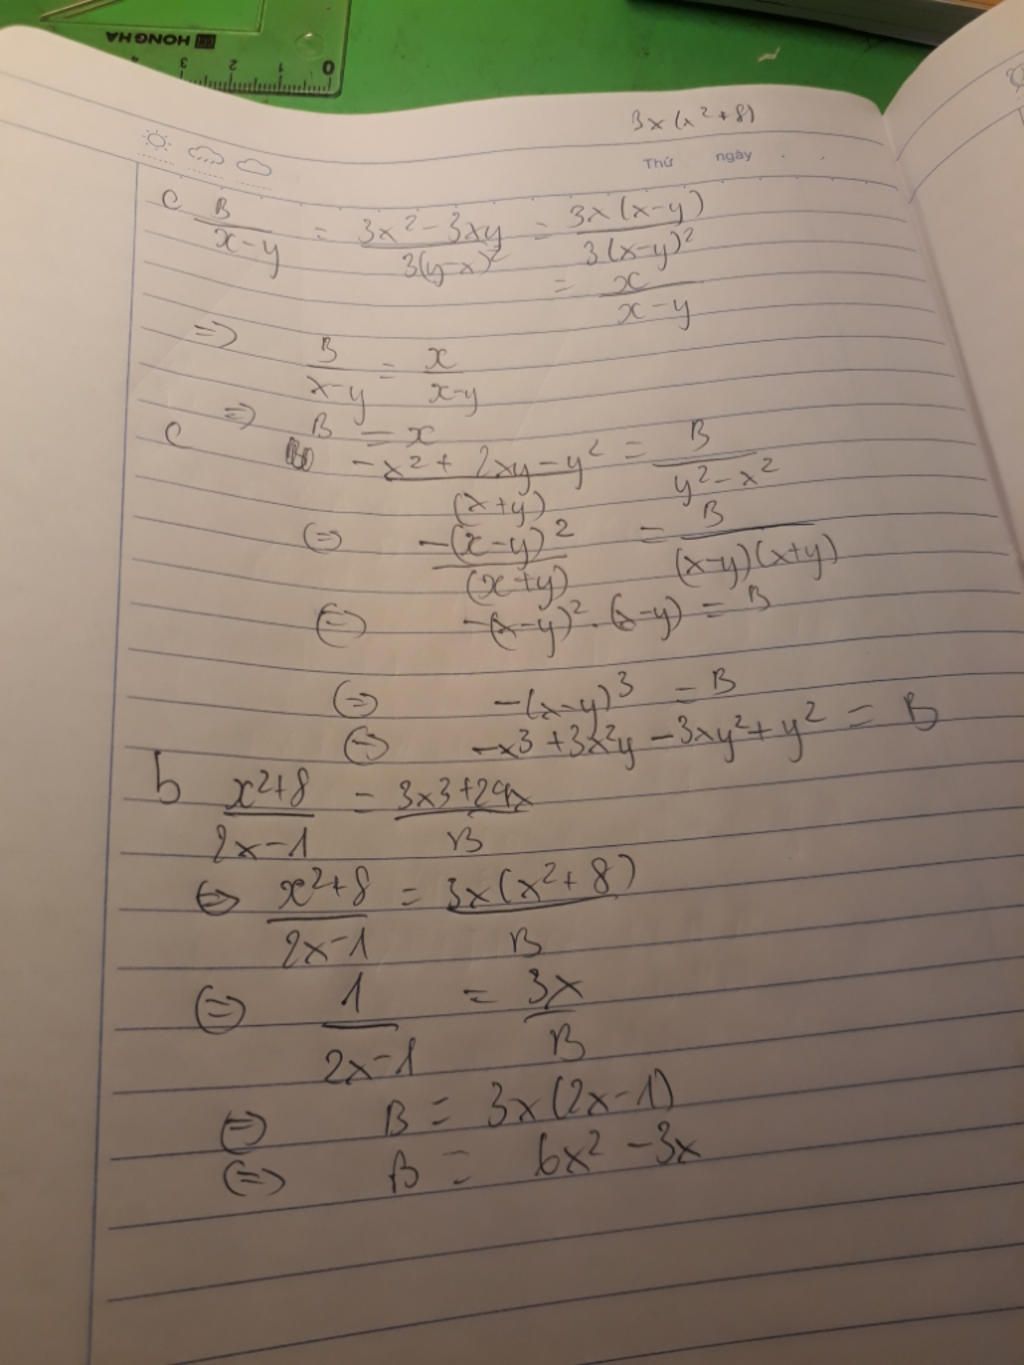 HONG HA
4 3 2 1 0
3x(x²+8)
Thứ ngày
c B/(x-y) = (3x²-3xy)/(3(y-x)²) = (3x(x-y))/(3(x-y)²)
= x/(x-y)
=> B/(x-y) = x/(x-y)
=> B = x
c (-x²+2xy-y²)/(x+y) = B/(y²-x²)
<=> (-(x-y)²)/(x+y) = B/((x-y)(x+y))
<=> -(x-y)².(x-y) = B
<=> -(x-y)³ = B
<=> -x³+3x²y-3xy²+y² = B
b (x²+8)/(2x-1) = (3x3+24x)/B
<=> (x²+8)/(2x-1) = (3x(x²+8))/B
<=> 1/(2x-1) = 3x/B
<=> B = 3x(2x-1)
<=> B = 6x²-3x